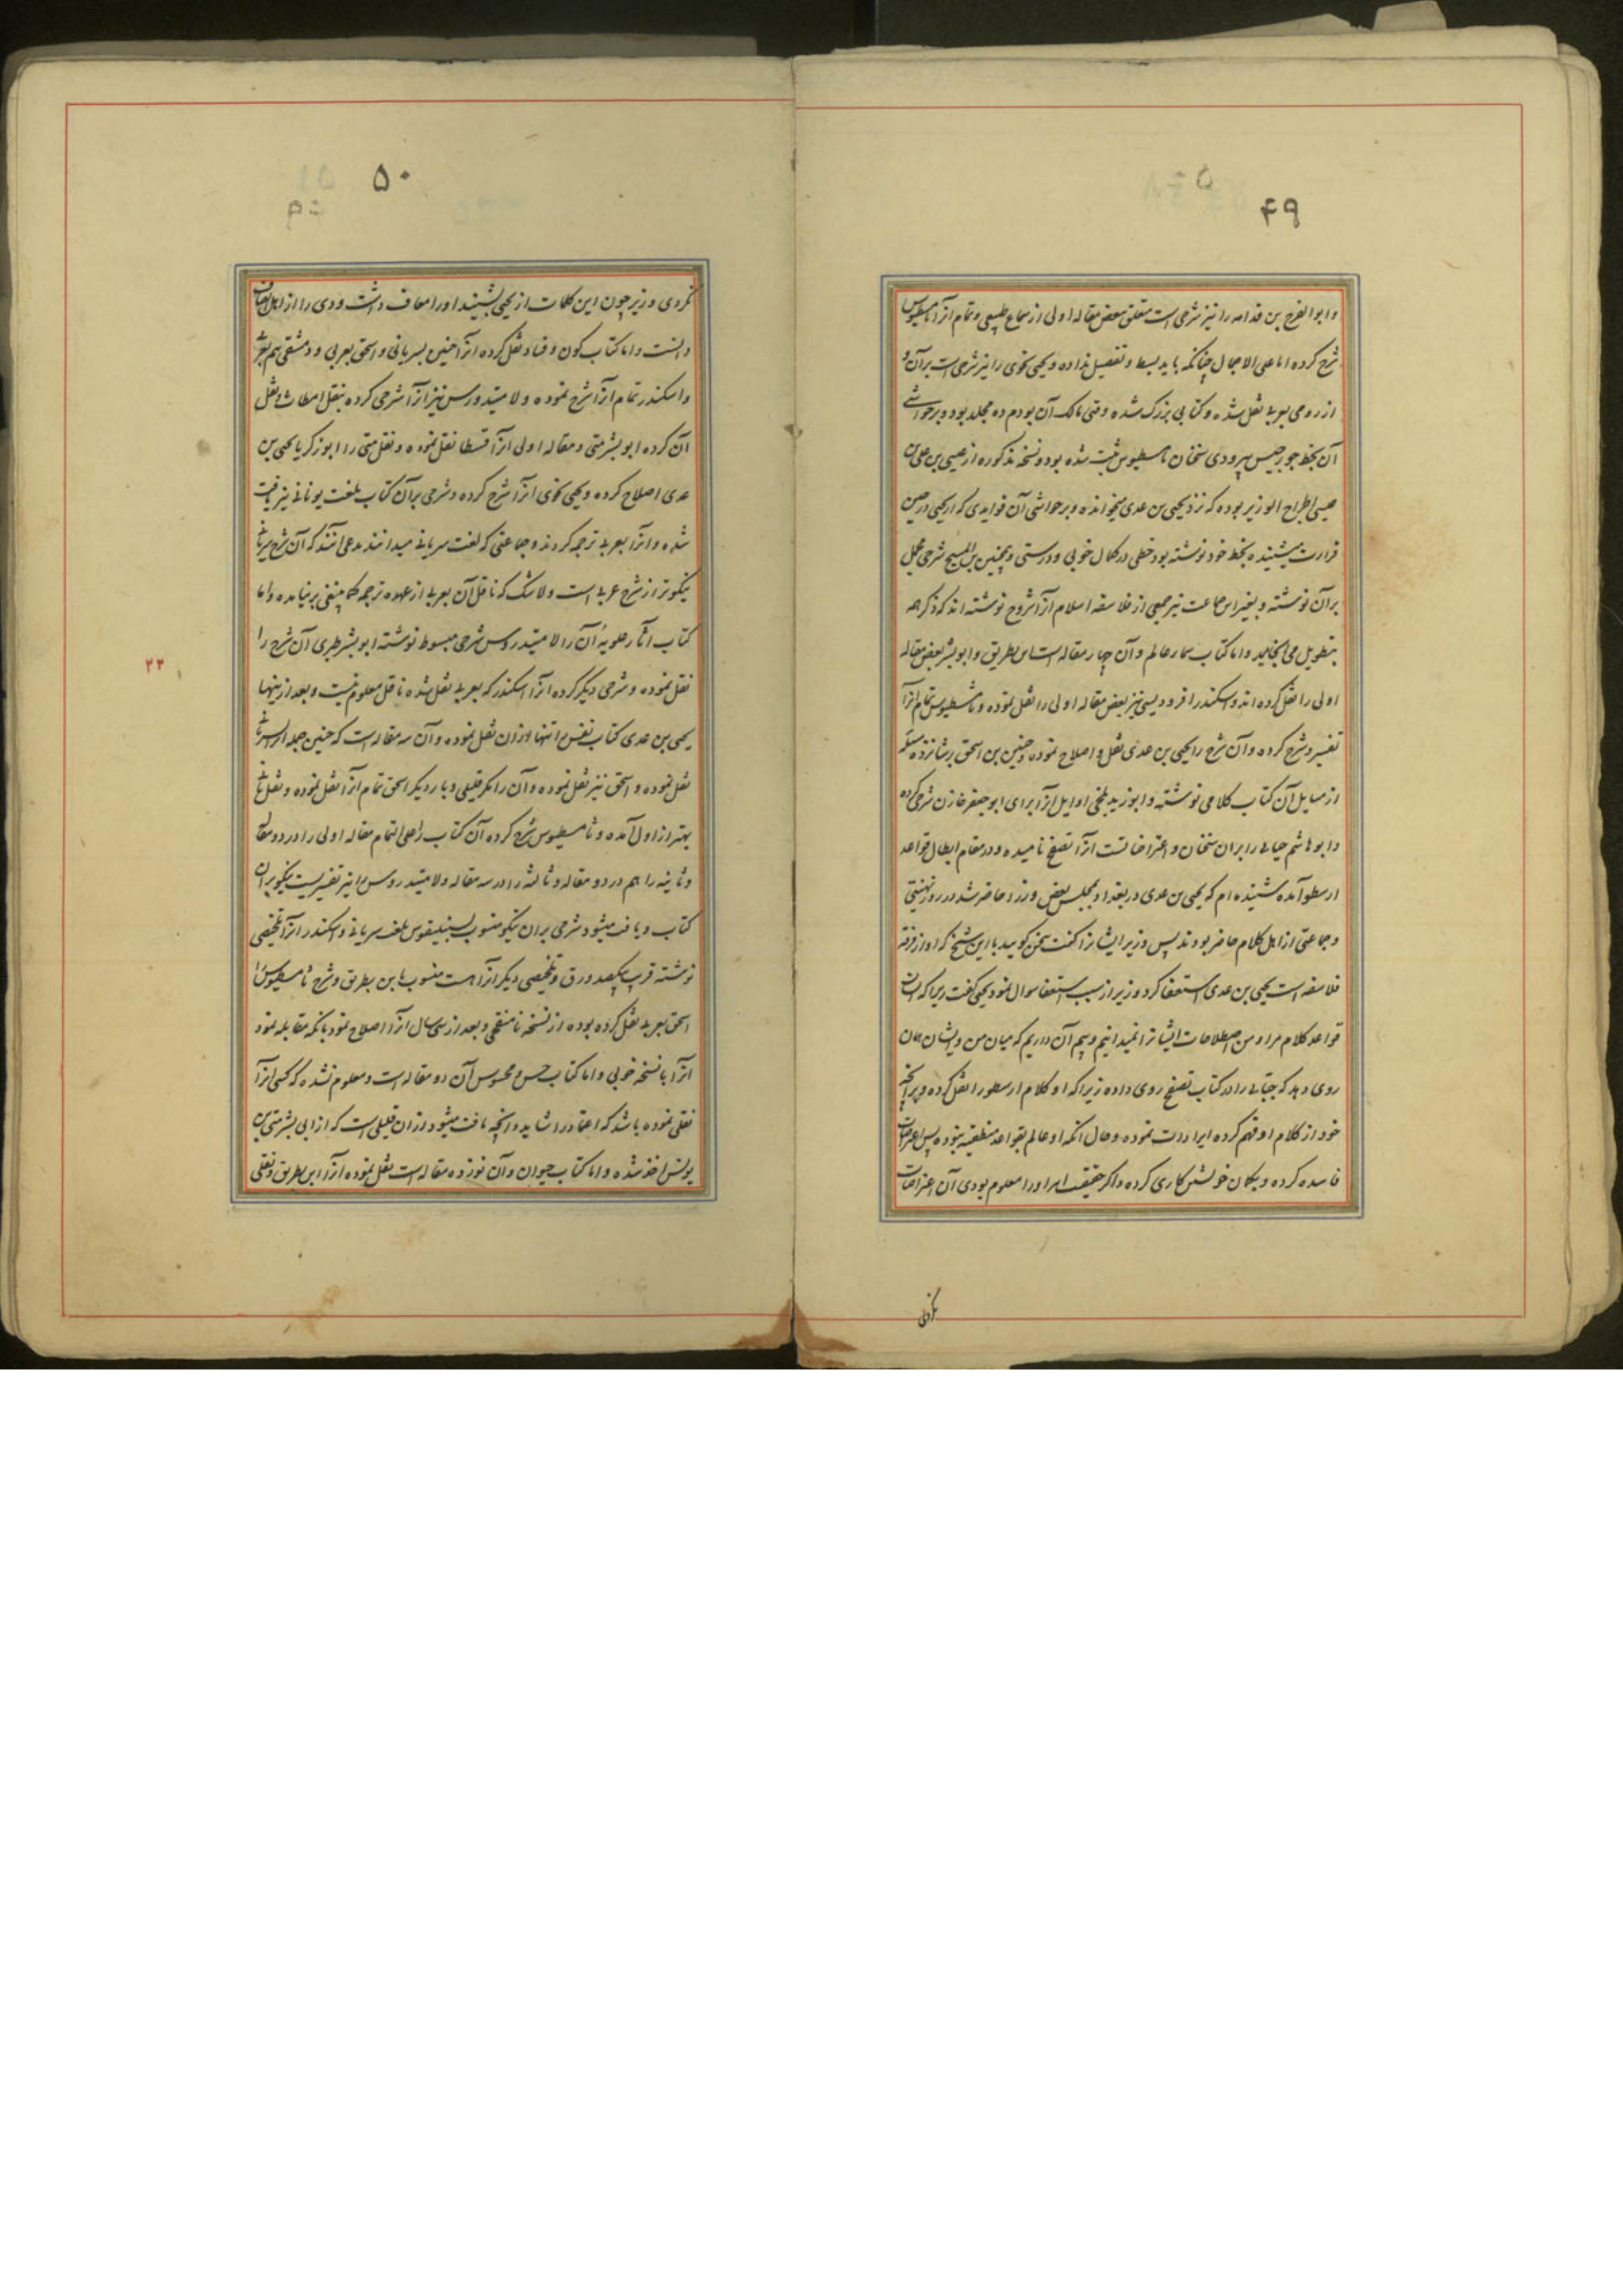 ۴۹
وابوالفرج بن قدامه را نیز شرحی است متعلق ببعض مقاله اولی از سماع طبیعی و تمام آنرا ثامسطیوس
شرح کرده اما علی الاجمال چنانکه باید بسط و تفصیل نداده و یحیی نحوی را نیز شرحی است بر آن و
از رومی بعربی نقل شده و کتابی بزرگ شده وقتی مالک آن بودم ده مجلد بود و بر حواشی
آن بخط جورجیس یبرودی سخنان ثامسطیوس ثبت شده بود و نسخه مذکوره از عیسی بن علی بن
عیسی الجراح الوزیر بوده که نزد یحیی بن عدی میخوانده و بر حواشی آن فوایدی که از یحیی در حین
قراءت میشنیده بخط خود نوشته بود خطی در کمال خوبی و درستی و همچنین بن المسیح شرحی مجمل
بر آن نوشته و بغیر این جماعت نیز جمعی از فلاسفه اسلام آنرا شروح نوشته اند که ذکر همه
بتطویل می انجامد و اما کتاب سمار عالم و آن چهار مقاله است ابن بطریق و ابوبشر بعض مقاله
اولی را نقل کرده اند و اسکندر افرودیسی نیز بعض مقاله اولی را نقل نموده و ثامسطیوس تمام آنرا
تفسیر و شرح کرده و آن شرح را یحیی بن عدی نقل و اصلاح نموده و حنین بن اسحق بر شانزده مسئله
از مسایل آن کتاب کلامی نوشته و ابوزید بلخی اوایل آنرا برای ابوجعفر خازن شرح کرده
و ابوهاشم جبائی را بر آن سخنان و اعتراضاتست آنرا تصفح نامیده و در مقام ابطال قواعد
ارسطو آمده شنیده ام که یحیی بن عدی در بغداد بمجلس بعض وزرا حاضر شد در روز تهنیتی
و جماعتی از اهل کلام حاضر بودند پس وزیر ایشانرا گفت سخن کویید با این شیخ که او از فرقه
فلاسفه است یحیی بن عدی استعفا کرد وزیر از سبب استعفا سوال نمود یحیی گفت زیرا که ایشان
قواعد کلام مرا و من اصطلاحات ایشانرا نمیدانیم و بیم آن داریم که میان من و ایشان همان
روی دهد که جبائی را در کتاب تصفح روی داده زیرا که او کلام ارسطو را نقل کرده و بر آنچه
خود از کلام او فهم کرده ایرادات نموده و حال انکه او عالم بقواعد منطقیه نبوده پس اعتراضات
فاسده کرده و بکمان خویش کاری کرده و اکر حقیقت امر او را معلوم بودی آن اعتراضات
نکردی
۵۰
نکردی وزیر چون این کلمات از یحیی بشنید او را معاف داشت و وی را از اهل انصاف
دانست و اما کتاب کون و فساد نقل کرده آنرا حنین بسریانی و اسحق بعربی و دمشقی هم بعربی
و اسکندر تمام آنرا شرح نموده و لامقیدورس نیز آنرا شرحی کرده بنقل اسطاث و نقل
آن کرده ابوبشر متی و مقاله اولی آنرا قسطا نقل نموده و نقل متی را ابوزکریا یحیی بن
عدی اصلاح کرده و یحیی نحوی آنرا شرح کرده و شرحی بر آن کتاب بلغت یونانی نیز یافت
شده و آنرا بعربی ترجمه کردند و جماعتی که لغت سریانی میدانند مدعی آنند که آن شرح سریانی
نیکوتر از شرح عربی است و لاشک که ناقل آن بعربی از عهده ترجمه کما ینبغی بر نیامده و اما
کتاب آثار علویه آن را لامقیدروس شرحی مبسوط نوشته ابوبشر طبری آن شرح را
نقل نموده و شرحی دیگر کرده آنرا اسکندر که بعربی نقل شده ناقل معلوم نیست و بعد از اینها
یحیی بن عدی کتاب نفس را تنها از آن نقل نموده و آن سه مقاله است که حنین جمله آنرا بسریانی
نقل نموده و اسحق نیز نقل نموده و آن را مکر قلیلی و بار دیگر اسحق تمام آنرا نقل نموده و نقل ثانی
بهتر از اول آمده و ثامسطیوس شرح کرده آن کتاب را علی التمام مقاله اولی را در دو مقاله
و ثانیه را هم در دو مقاله و ثالثه را در سه مقاله و لامقیدروس را نیز تفسیریست نیکو بر آن
کتاب و یافت میشود شرحی بر آن نیکو منسوب بسنبلیقوس بلغت سریانی و اسکندر آنرا تلخیصی
نوشته قریب بیکصد ورق و تلخیصی دیگر آنرا هست منسوب بابن بطریق و شرح ثامسطیوس را
اسحق بعربی نقل کرده بوده از نسخه نامنقحی و بعد از سی سال آنرا اصلاح نمود بانکه مقابله نمود
آنرا با نسخه خوبی و اما کتاب حس و محسوس آن دو مقاله است و معلوم نشده که کسی آنرا
نقلی نموده باشد که اعتماد را شاید و آنچه یافت میشود از آن قلیلی است که از ابی بشر متی بن
یونس اخذ شده و اما کتاب حیوان و آن نوزده مقاله است نقل نموده آنرا ابن بطریق و نقلی
۲۳